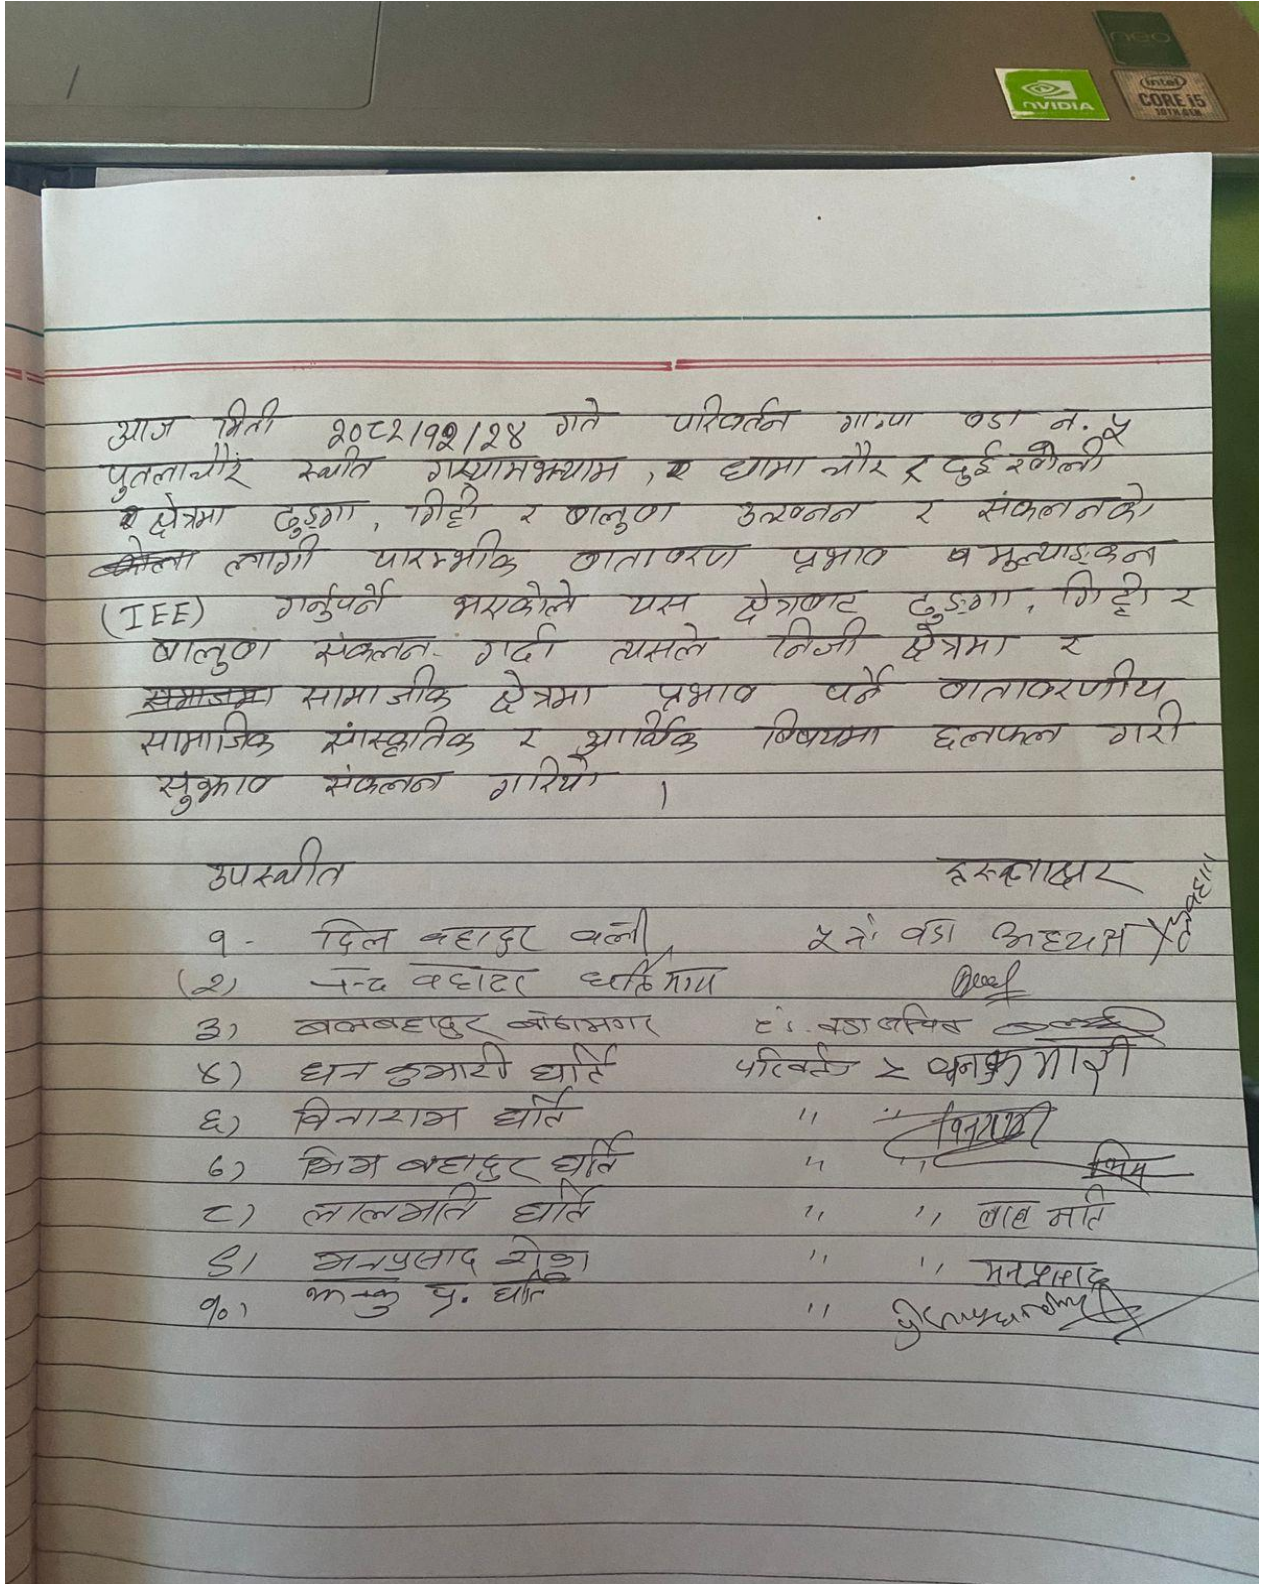 neo
nVIDIA
intel
CORE i5
10TH GEN
आज मिती २०८२/१२/२४ गते परिवर्तन गा.पा वडा न. ५
पुतलाचौर स्थीत गस्यामभ्याम, धामा चौर र दुई खोली
क्षेत्रमा ढुङ्गा, गिट्टी र बालुवा उत्खनन र संकलनको
लागी पारम्भीक वातावरण प्रभाव मुल्याङ्कन
(IEE) गर्नुपर्ने भएकोले यस क्षेत्रबाट ढुङ्गा, गिट्टी र
बालुवा संकलन गर्दा त्यसले निजी क्षेत्रमा र
सामाजीक क्षेत्रमा प्रभाव पर्ने वातावरणीय
सामाजिक सांस्कृतिक र आर्थिक विषयमा छलफल गरी
सुझाव संकलन गरियो ।
उपस्थीत हस्ताक्षर
१- दिल बहादुर वली ५ नं वडा अध्यक्ष
(२) बहादुर घर्ति मगर
३) बलबहादुर वडा सचिव
४) धन कुमारी घर्ति परिवर्तन ५ धनकुमारी
६) विनाराम घर्ति " "
७) भिम बहादुर घर्ति " " भिम
८) लालमति घर्ति " " लाल मति
९) मनप्रसाद रोका " " मनप्रसाद
१०) प्र. घर्ति "